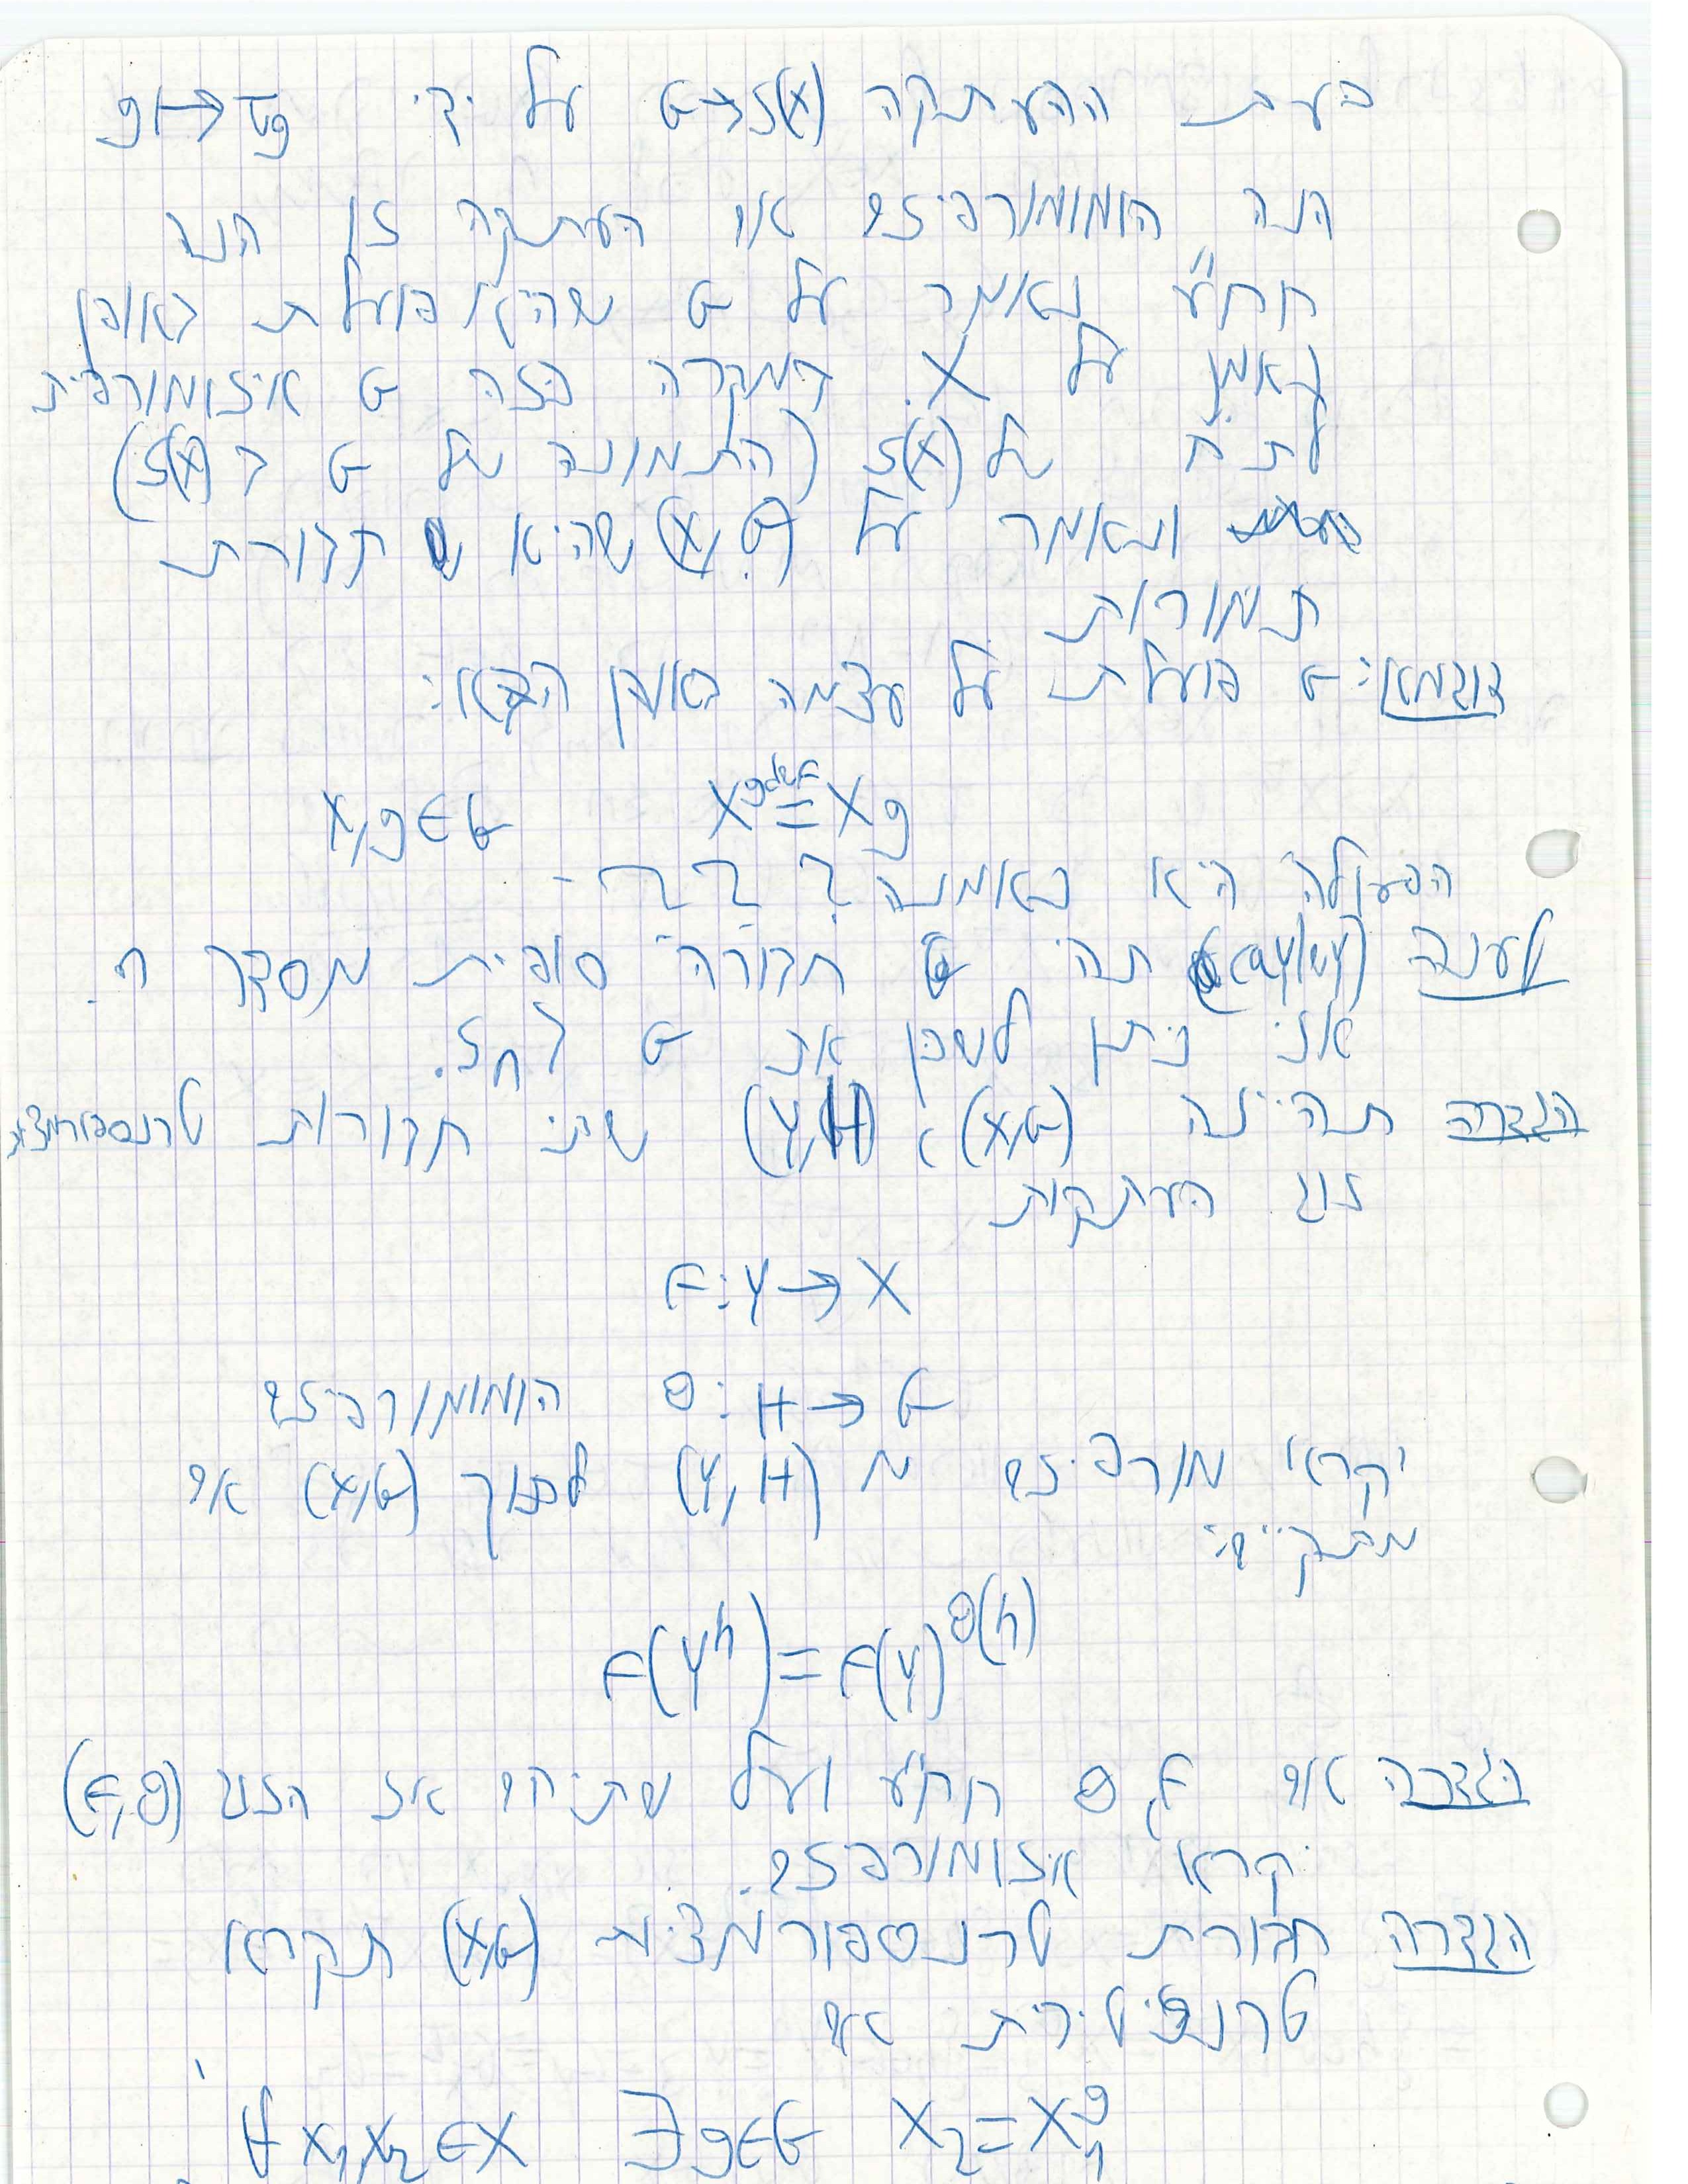 כעת ההעתקה G→S(X) על ידי g↦π_g
הנה הומומורפיזם אם העתקה זו הנה
חח"ע נאמר על G שהיא פועלת באופן
נאמן על X. במקרה הזה G איזומורפית
לת"ח של S(X) (התמונה של G ב S(X))
ונאמר על (X,G) שהיא חבורת
תמורות
דוגמא: G פועלת על עצמה באופן הבא:
x^g = xg    x,g∈G
הפעולה היא נאמנה
טענה (Cayley) תהי G חבורה סופית מסדר n.
אזי ניתן לשכן את G ב S_n.
הגדרה תהיינה (X,G), (Y,H) שתי חבורות טרנספורמציה
זוג העתקות
F:Y→X
θ:H→G הומומורפיזם
יקרא מורפיזם מ (Y,H) לתוך (X,G) אם
מתקיים:
F(y^h)=F(y)^θ(h)
הגדרה אם F,θ חח"ע ועל שתיהם אז הזוג (F,θ)
יקרא איזומורפיזם.
הגדרה חבורת טרנספורמציות (X,G) תקרא
טרנזיטיבית אם
∀x₁,x₂∈X ∃g∈G x₂=x₁^g